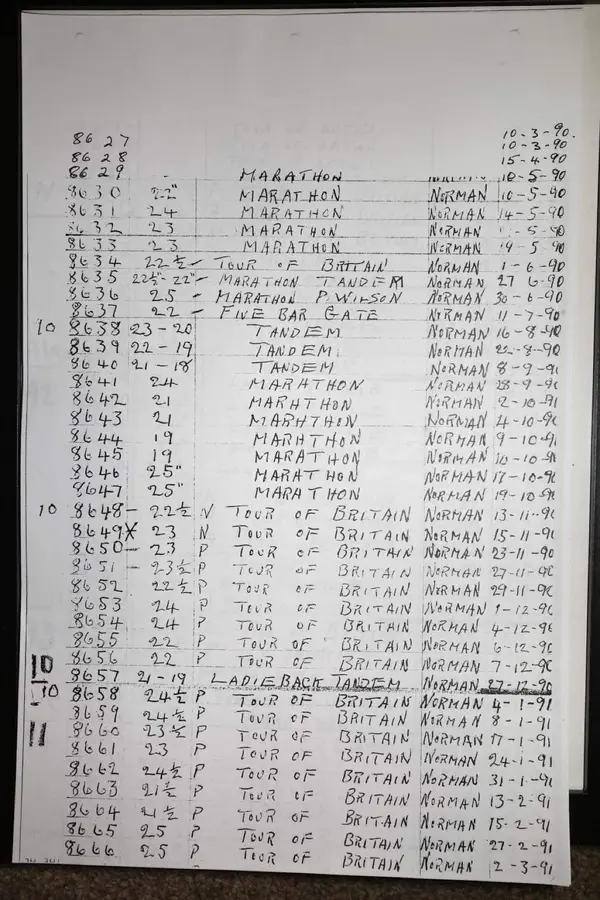 8627 10-3-90.
8628 10-3-90
8629 - MARATHON 15-4-90
8630 22" MARATHON NORMAN 10-5-90
8631 24 MARATHON NORMAN 14-5-90
8632 23 MARATHON NORMAN -5-90
8633 23 MARATHON NORMAN 19-5-90
8634 22½ - TOUR OF BRITAIN NORMAN 1-6-90
8635 22½"-22" - MARATHON TANDEM NORMAN 27 6-90
8636 25 - MARATHON P WILSON NORMAN 30-6-90
8637 22 - FIVE BAR GATE NORMAN 11-7-90
10 8638 23-20 TANDEM NORMAN 16-8-90
8639 22-19 TANDEM NORMAN 22-8-90
8640 21-18 TANDEM NORMAN 8-9-
8641 24 MARATHON NORMAN 28-9-
8642 21 MARATHON NORMAN 2-10-
8643 21 MARATHON NORMAN 4-10-
8644 19 MARATHON NORMAN 9-10-
8645 19 MARATHON NORMAN 10-10-
8646 25" MARATHON NORMAN 17-10-
8647 25" MARATHON NORMAN 19-10-
10 8648 - 22½ N TOUR OF BRITAIN NORMAN 13-11-
8649X 23 N TOUR OF BRITAIN NORMAN 15-11-
8650 - 23 P TOUR OF BRITAIN NORMAN 23-11-90
8651 - 23½ P TOUR OF BRITAIN NORMAN 27-11-
8652 22½ P TOUR OF BRITAIN NORMAN 29-11-
8653 24 P TOUR OF BRITAIN NORMAN 1-12-
8654 24 P TOUR OF BRITAIN NORMAN 4-12-
8655 22 P TOUR OF BRITAIN NORMAN 6-12-
8656 22 P TOUR OF BRITAIN NORMAN 7-12-
10 8657 21-19 LADIE BACK TANDEM NORMAN 27-12-90
10 8658 24½ P TOUR OF BRITAIN NORMAN 4-1-91
8659 24½ P TOUR OF BRITAIN NORMAN 8-1-91
11 8660 23½ P TOUR OF BRITAIN NORMAN 17-1-91
8661 23 P TOUR OF BRITAIN NORMAN 24-1-91
8662 24½ P TOUR OF BRITAIN NORMAN 31-1-91
8663 21½ P TOUR OF BRITAIN NORMAN 13-2-91
8664 21½ P TOUR OF BRITAIN NORMAN 15-2-91
8665 25 P TOUR OF BRITAIN NORMAN 27-2-91
8666 25 P TOUR OF BRITAIN NORMAN 2-3-91